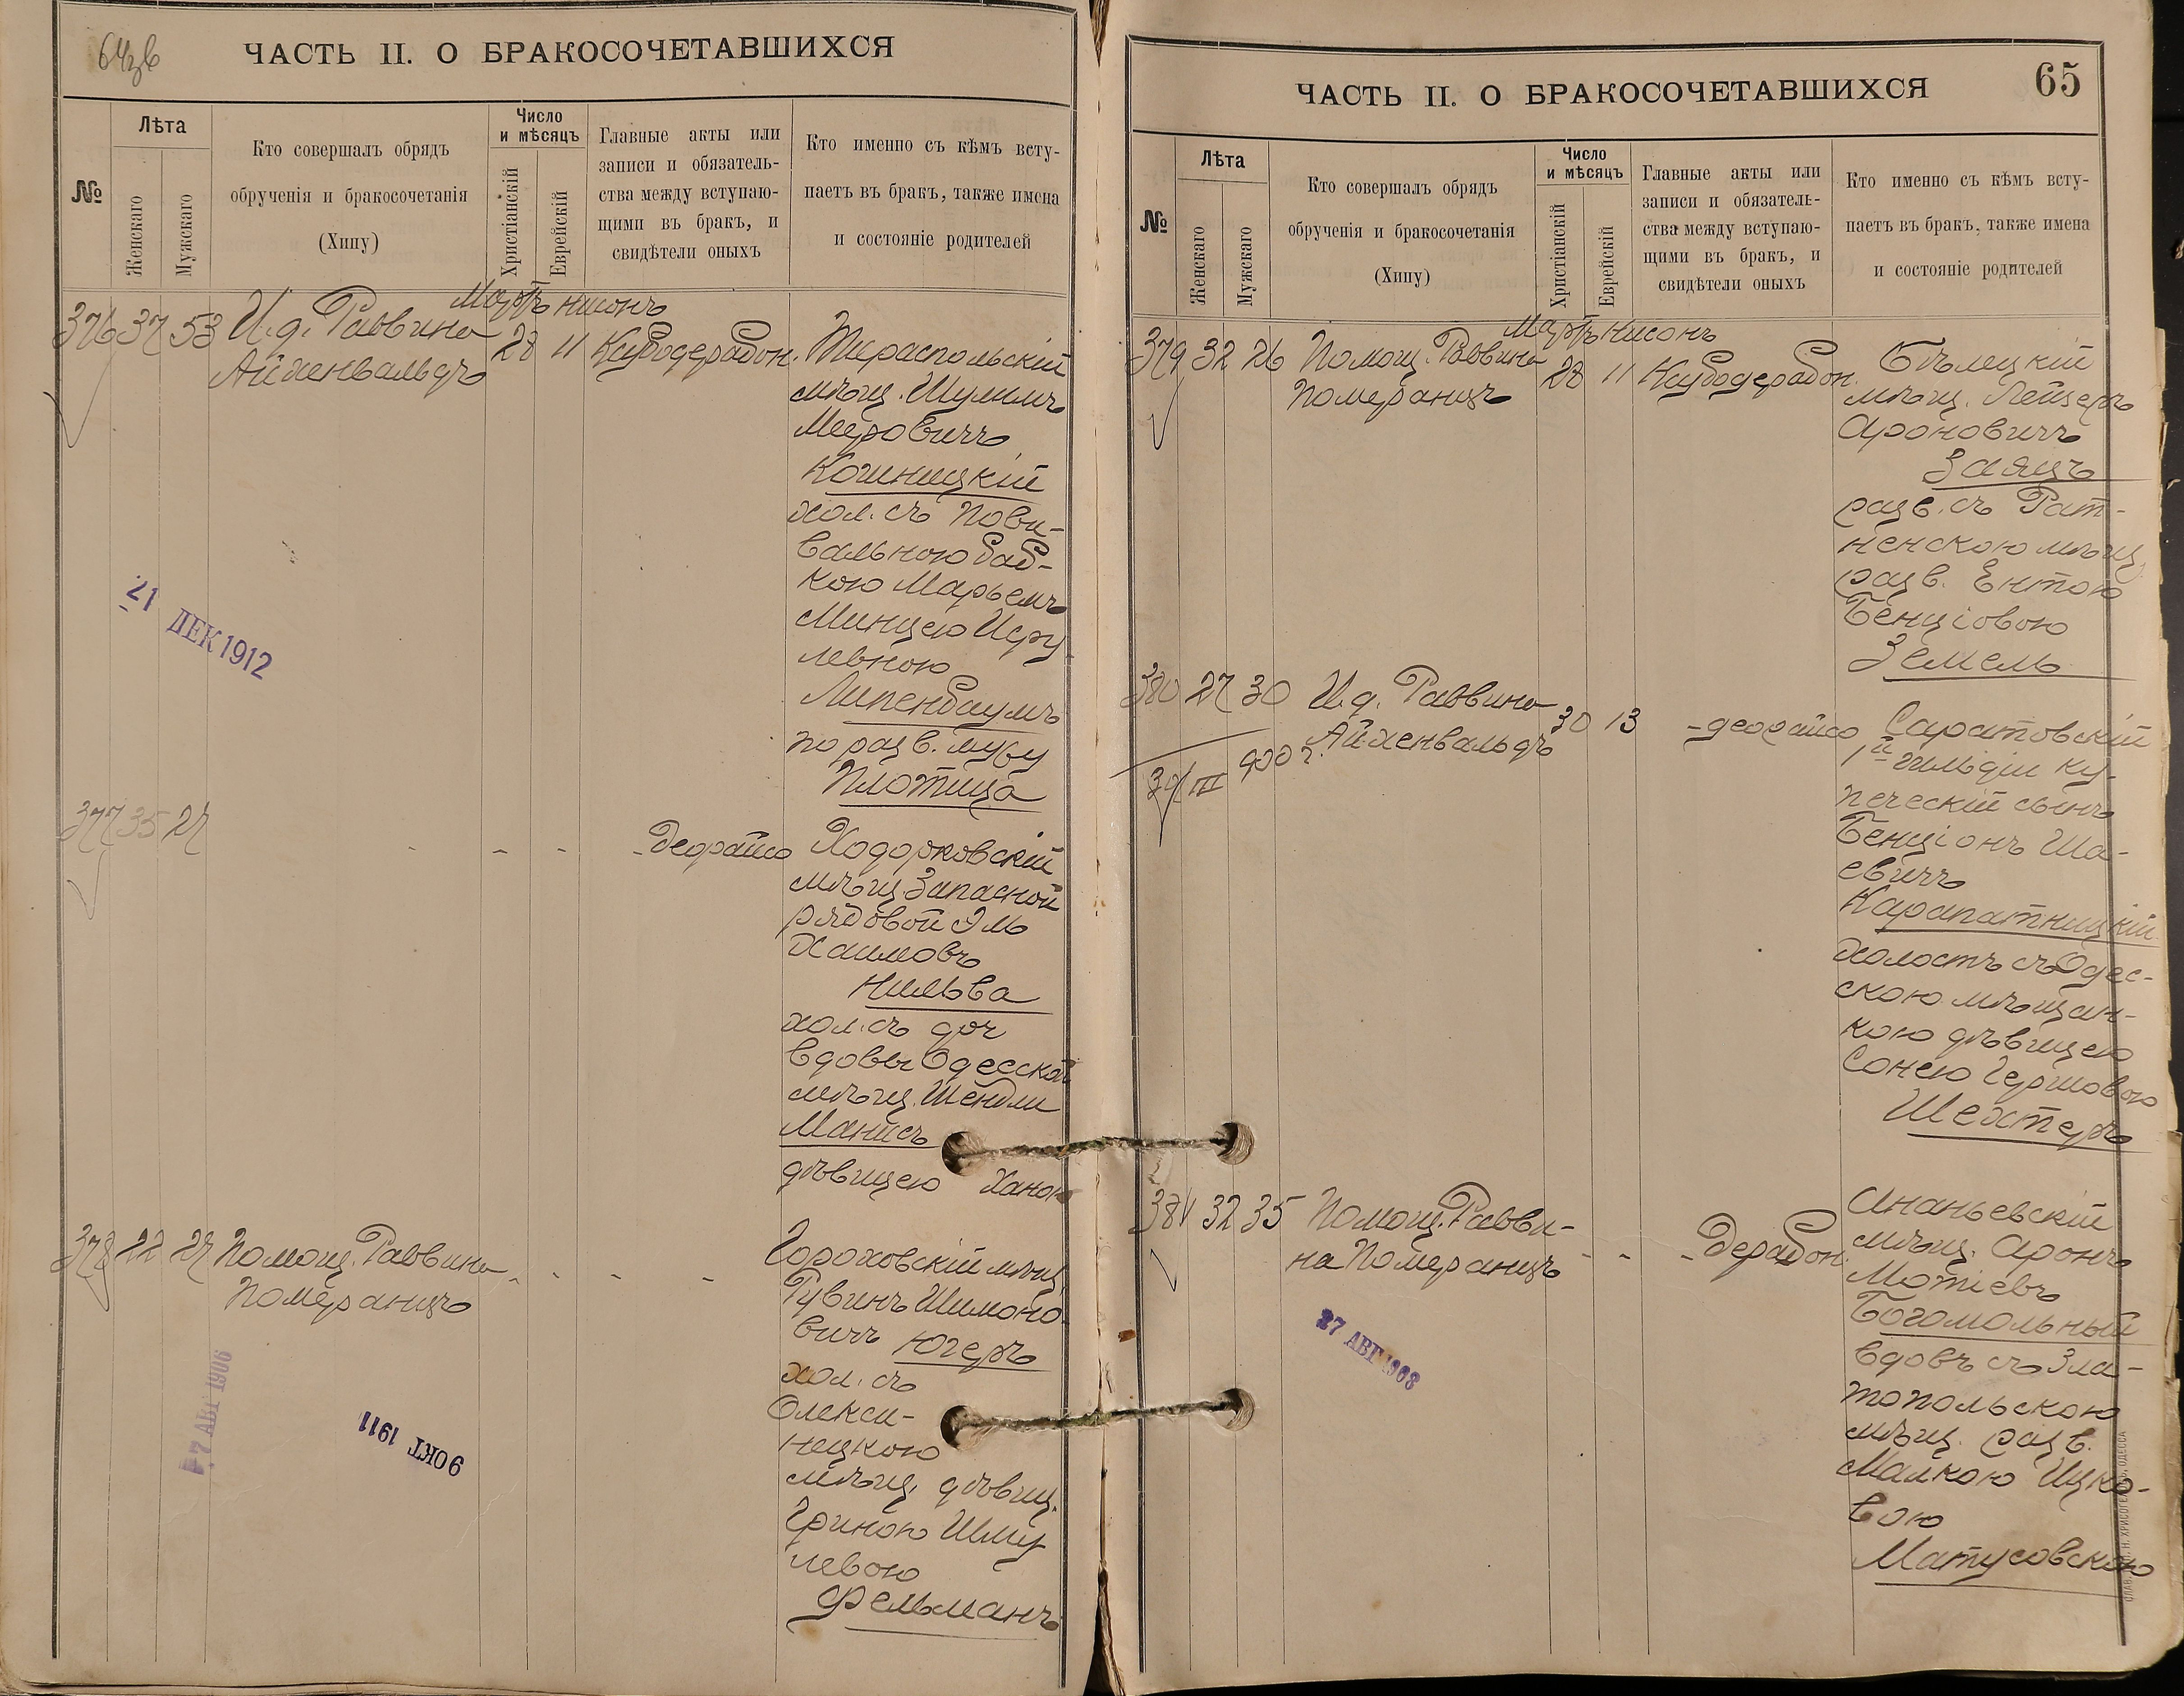 64зв
ЧАСТЬ II. О БРАКОСОЧЕТАВШИХСЯ
№
Лѣта
Женскаго
Мужскаго
Кто совершалъ обрядъ
обрученія и бракосочетанія
(Хипу)
Число
и мѣсяцъ
Христіанскій
Еврейскій
Главные акты или
записи и обязатель-
ства между вступаю-
щими въ бракъ, и
свидѣтели оныхъ
Кто именно съ кѣмъ всту-
паетъ въ бракъ, также имена
и состояніе родителей
Мартъ Нисонъ
376 37 53 И. д. Раввина 28 11 Кисбодерабон.
Айхенвальдъ
Тираспольскій
мѣщ. Шулимъ
Мееровичъ
Кошницкій
хол. съ пови-
вальною баб-
кою Марьемъ
Минцею Исру
левною
Липенбаумъ
по разв. мужу
Плотица
377 35 27 - - - -Деорайсо
Ходорковскій
мѣщ Запасной
рядовой Эль
Хаимовъ
Нильва
хол. съ доч
вдовы Одесской
мѣщ. Шендли
Манисъ
дѣвицею Ханою
378 22 27 Помощ. Раввина - - - -
Померанцъ
Гороховскій мѣщ
Рувинъ Шимоно
вичъ Югеръ
хол. съ
Олекси-
нецкою
мѣщ. дѣвиц.
Гринею Шму
левою
Фельманъ
21 ДЕК 1912
7 АВГ 1906
9 ОКТ 1911
65
ЧАСТЬ II. О БРАКОСОЧЕТАВШИХСЯ
№
Лѣта
Женскаго
Мужскаго
Кто совершалъ обрядъ
обрученія и бракосочетанія
(Хипу)
Число
и мѣсяцъ
Христіанскій
Еврейскій
Главные акты или
записи и обязатель-
ства между вступаю-
щими въ бракъ, и
свидѣтели оныхъ
Кто именно съ кѣмъ всту-
паетъ въ бракъ, также имена
и состояніе родителей
Мартъ Нисонъ
379 32 26 Помощ. Раввина 28 11 Кисбодерабон.
Померанцъ
Бѣлецкій
мѣщ. Лейзеръ
Ароновичъ
Заяцъ
разв. съ Рат-
ненскою мѣщ.
разв. Ентою
Бенціовою
Земель
380 27 30 И. д. Раввина 30 13 -деорайсо
Айхенвальдъ
30/III 900 г.
Саратовскій
1й гильдіи ку-
печескій сынъ
Бенціонъ Ша-
евичъ
Карапатницкій
холостъ съ Одес-
скою мѣщан-
кою дѣвицею
Сонею Гершовою
Шехтеръ
381 32 35 Помощ. Равви- - - -Дерабон.
на Померанцъ
Ананьевскій
мѣщ. Аронъ
Мотіевъ
Богомольный
вдовъ съ Зла-
топольскою
мѣщ. разв.
Малкою Ицко-
вою
Матусовскою
27 АВГ 1908